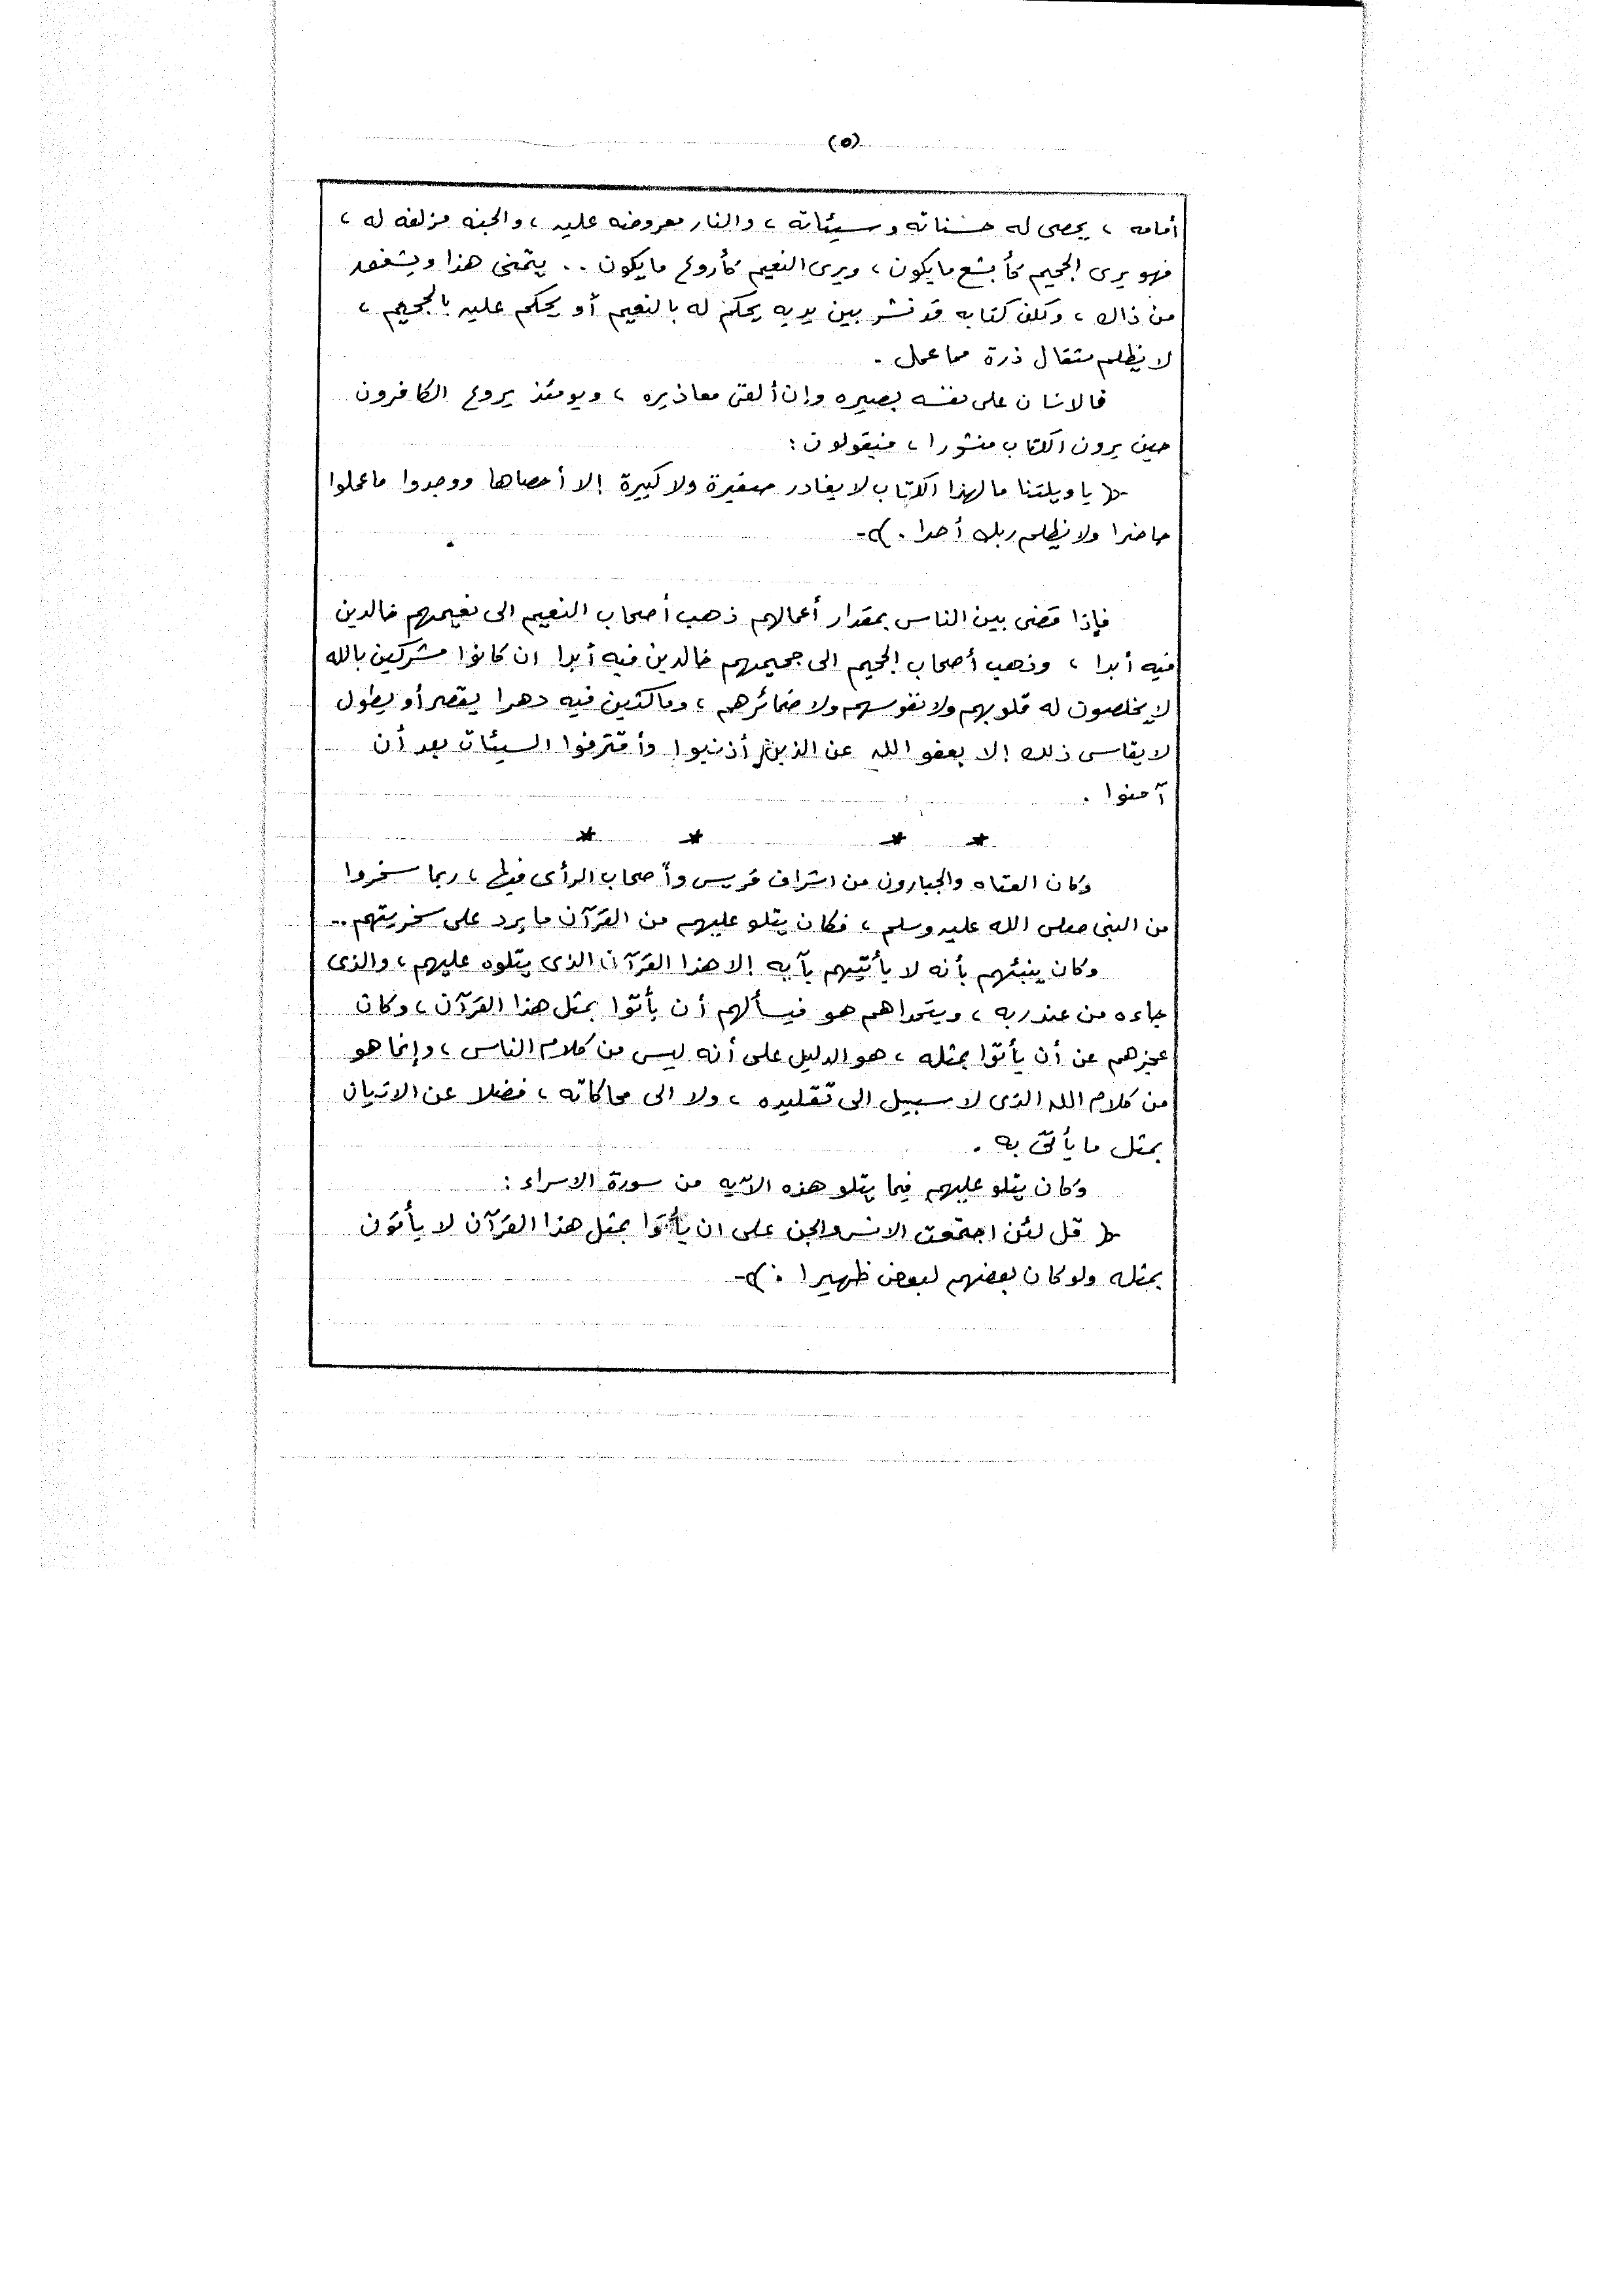 (٥)
أمامه ، يحصى له حسناته وسيئاته ، والنار معروضه عليه ، والجنه مزلفه له ،
فهو يرى الجحيم كأبشع مايكون ، ويرى النعيم كأروع مايكون .. يتمنى هذا ويشفق
من ذاك ، ولكن كتابه قد نشر بين يديه يحكم له بالنعيم أو يحكم عليه بالجحيم ،
لا يظلم مثقال ذرة مما عمل .
فالانسان على نفسه بصيره وإن ألقى معاذيره ، ويومئذ يروع الكافرون
حين يرون الكتاب منشورا ، فيقولون :
﴿ يا ويلتنا ما لهذا الكتاب لا يغادر صغيرة ولا كبيرة إلا أحصاها ووجدوا ما عملوا
حاضرا ولا يظلم ربك أحدا . ﴾
فإذا قضى بين الناس بمقدار أعمالهم ذهب أصحاب النعيم الى نعيمهم خالدين
فيه أبدا ، وذهب أصحاب الجحيم الى جحيمهم خالدين فيه أبدا ان كانوا مشركين بالله
لا يخلصون له قلوبهم ولا نفوسهم ولا ضمائرهم ، وماكثين فيه دهرا يقصر أو يطول
لا يقاس ذلك إلا بعفو الله عن الذين أذنبوا وأقترفوا السيئات بعد أن
آمنوا .
* * * *
وكان العتاه والجبارون من اشراف قريس وأصحاب الرأى فيها ، ربما سخروا
من النبى صلى الله عليه وسلم ، فكان يتلو عليهم من القرآن ما يرد على سخريتهم ..
وكان ينبئهم بأنه لا يأتيهم بآيه إلا هذا القرآن الذى يتلوه عليهم ، والذى
جاءه من عند ربه ، ويتحداهم هو فيسألهم أن يأتوا بمثل هذا القرآن ، وكان
عجزهم عن أن يأتوا بمثله ، هو الدليل على أنه ليس من كلام الناس ، وإنما هو
من كلام الله الذى لا سبيل الى تقليده ، ولا الى محاكاته ، فضلا عن الاتيان
بمثل ما يأتى به .
وكان يتلو عليهم فيما يتلو هذه الآيه من سورة الاسراء :
﴿ قل لئن اجتمعت الانس والجن على ان يأتوا بمثل هذا القرآن لا يأتون
بمثله ولو كان بعضهم لبعض ظهيرا . ﴾